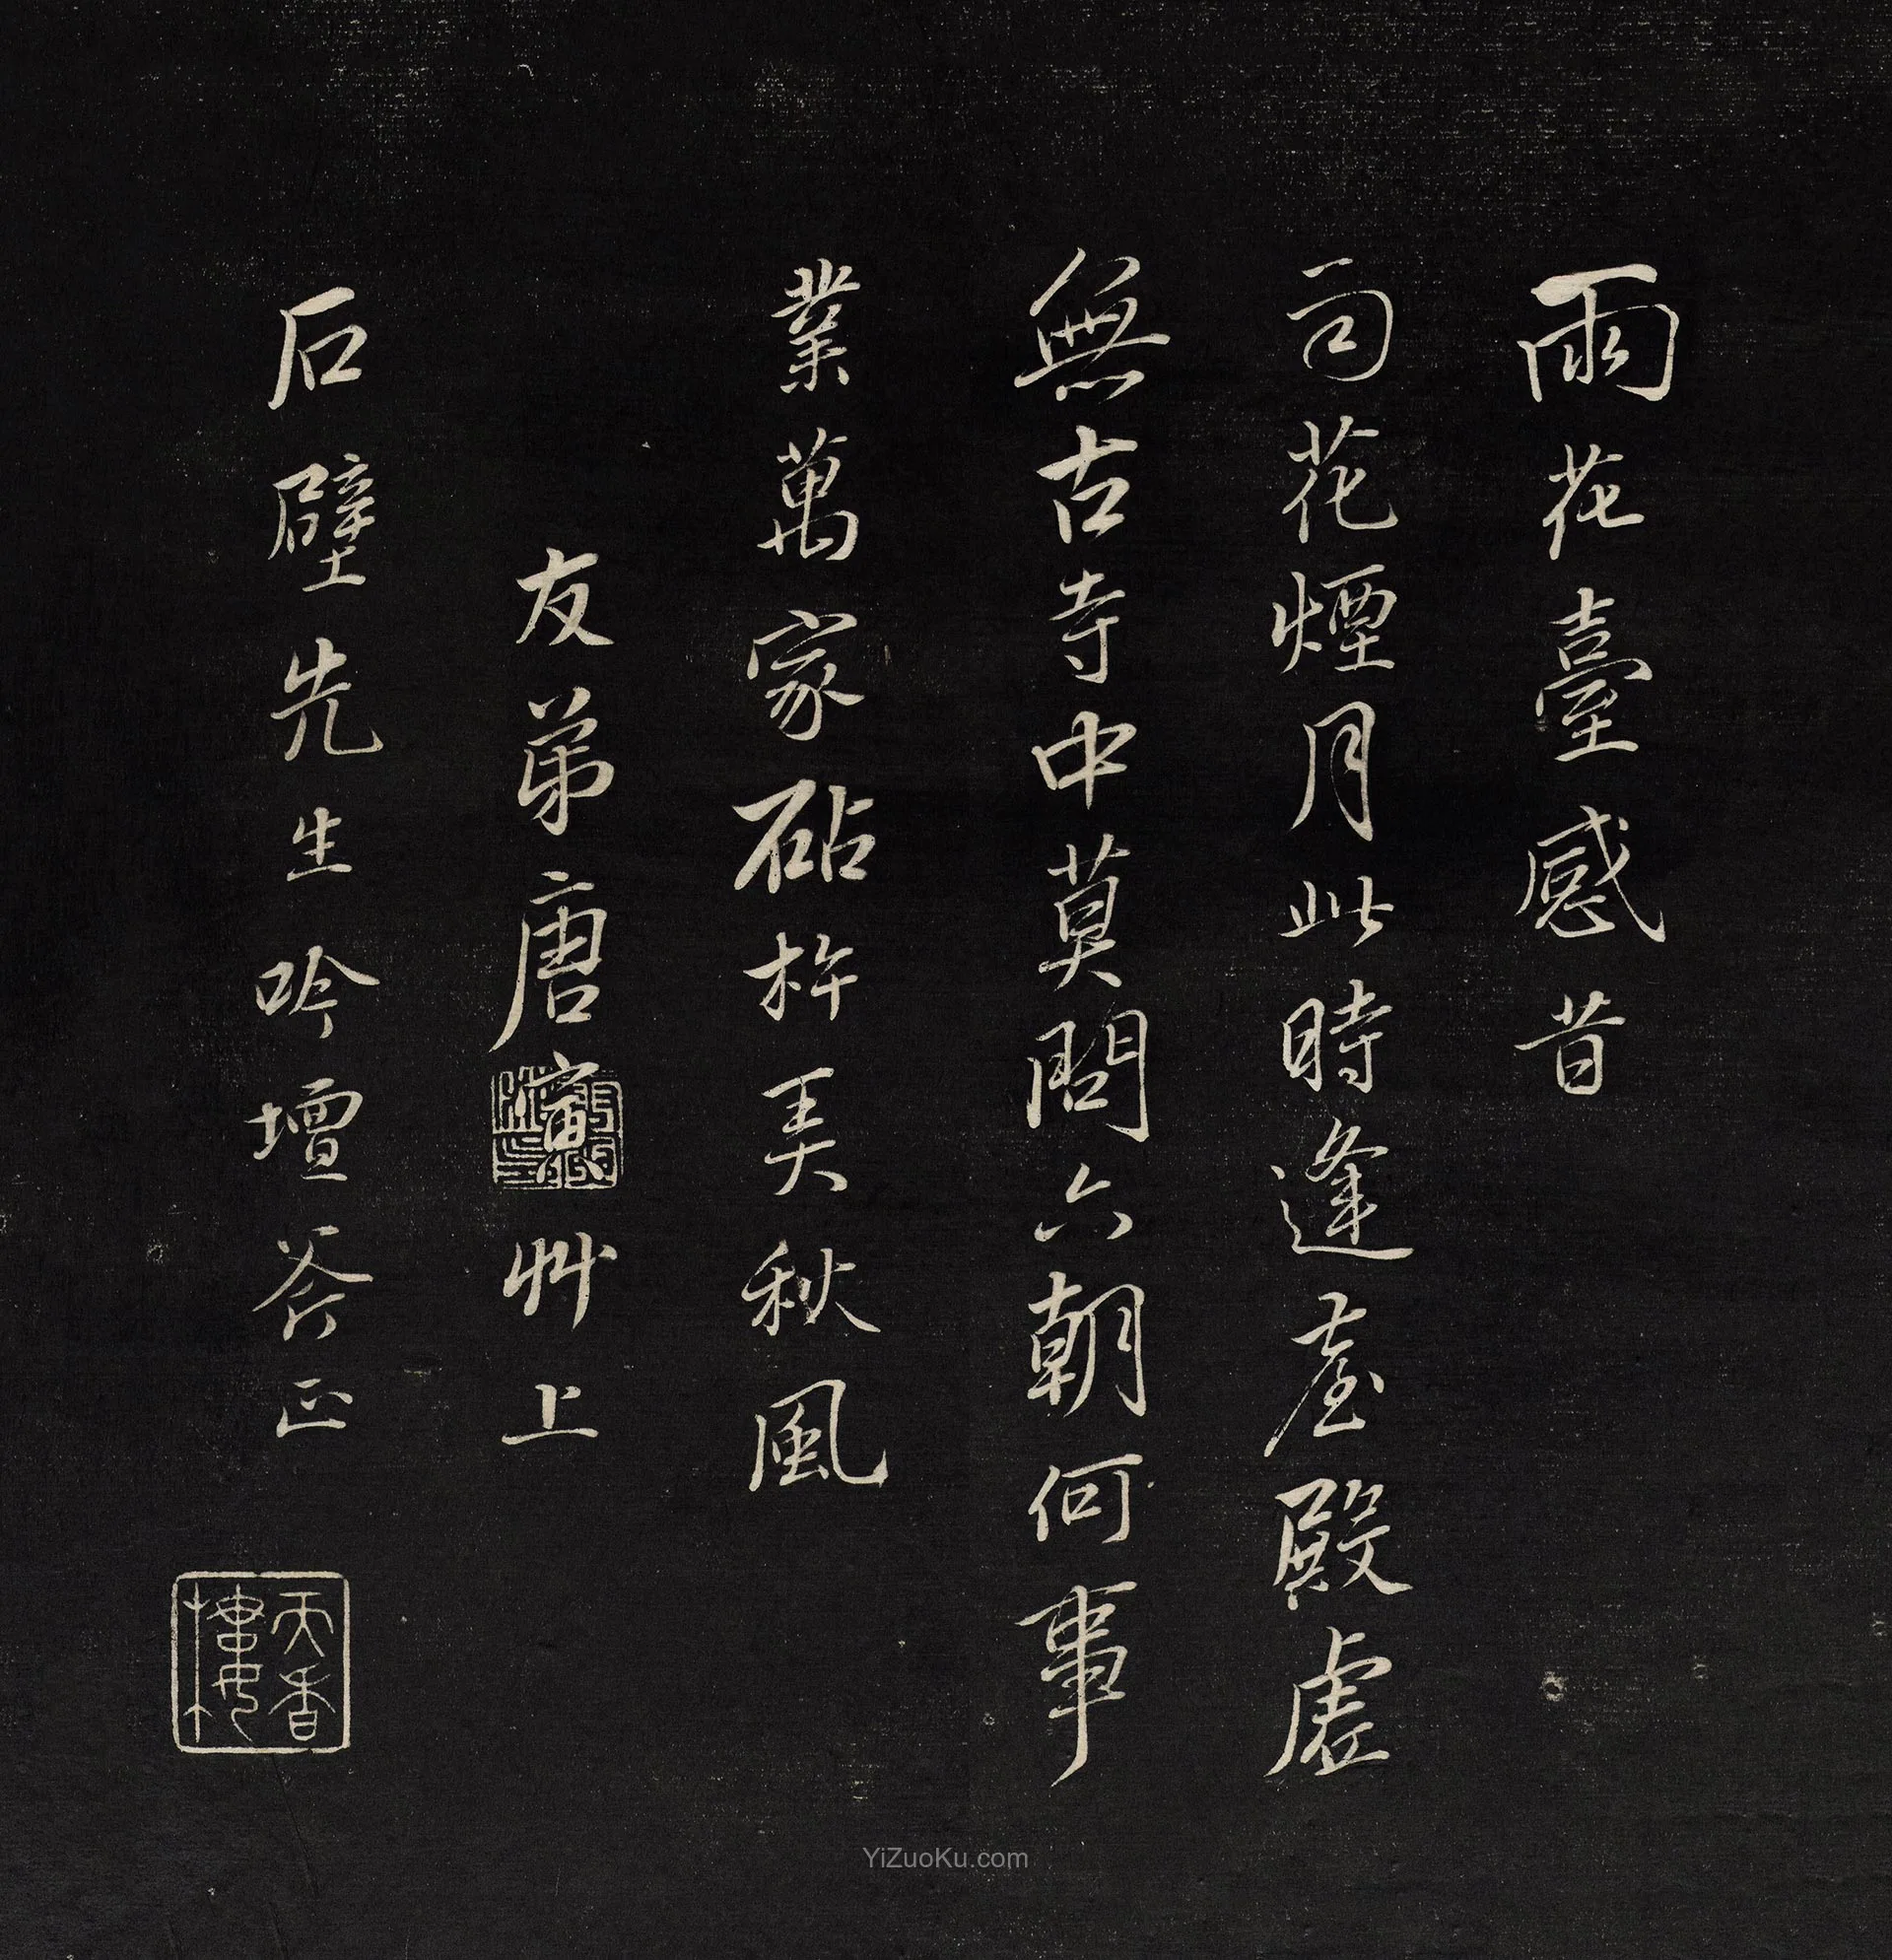 雨花臺感昔
司花煙月此時逢臺殿虛
無古寺中莫問六朝何事
業萬家砧杵弄秋風
友弟唐寅艸上
石壁先生吟壇荅正
天香樓
YiZuoKu.com